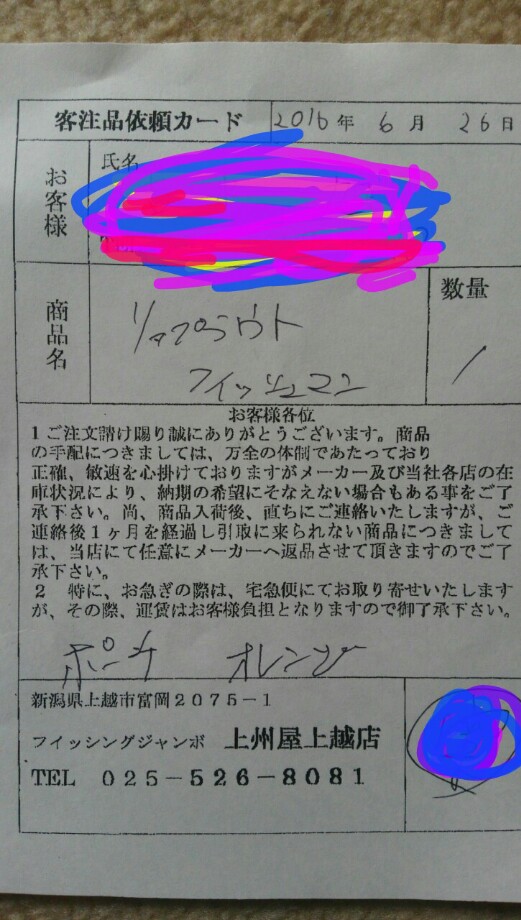 客注品依頼カード 2016年 6月 26日
お客様
氏名
商品名
リアプラウト
フイッシュマン
数量
1
お客様各位
1ご注文請け賜り誠にありがとうございます。商品
の手配につきましては、万全の体制であたっており
正確、敏速を心掛けておりますがメーカー及び当社各店の在
庫状況により、納期の希望にそなえない場合もある事をご了
承下さい。尚、商品入荷後、直ちにご連絡いたしますが、ご
連絡後1ヶ月を経過し引取に来られない商品につきまして
は、当店にて任意にメーカーへ返品させて頂きますのでご了
承下さい。
2 特に、お急ぎの際は、宅急便にてお取り寄せいたします
が、その際、運賃はお客様負担となりますので御了承下さい。
ポーチ オレンジ
新潟県上越市富岡2075－1
フイッシングジャンボ 上州屋上越店
TEL 025－526－8081